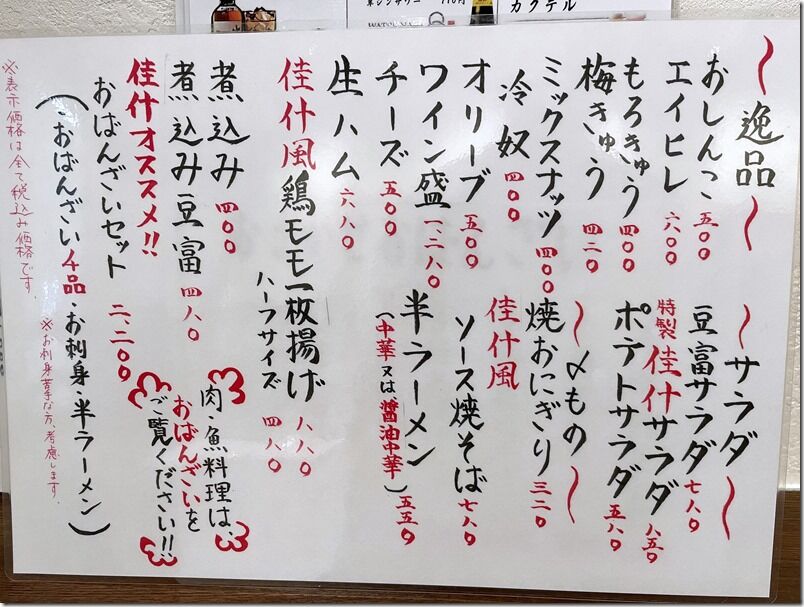 ～逸品～
おしんこ 五〇〇
エイヒレ 六〇〇
もろきゅう 四〇〇
梅きゅう 四二〇
ミックスナッツ 四〇〇
冷奴 四〇〇
オリーブ 五〇〇
ワイン盛 一、二八〇
チーズ 五〇〇
生ハム 六八〇
佳什風鶏モモ一枚揚げ 八八〇
ハーフサイズ 四八〇
煮込み 四〇〇
煮込み豆富 四八〇
佳什オススメ!!
おばんざいセット 二、二〇〇
(・おばんざい4品・お刺身・半ラーメン)
※お刺身苦手な方、考慮します。
※表示価格は全て税込み価格です。
～サラダ～
豆富サラダ 七八〇
特製佳什サラダ 八五〇
ポテトサラダ 五八〇
～〆もの～
焼おにぎり 三二〇
佳什風
ソース焼そば 七八〇
半ラーメン 五五〇
(中華又は醤油中華)
肉・魚料理は、
おばんざいを
ご覧ください!!
カクテル